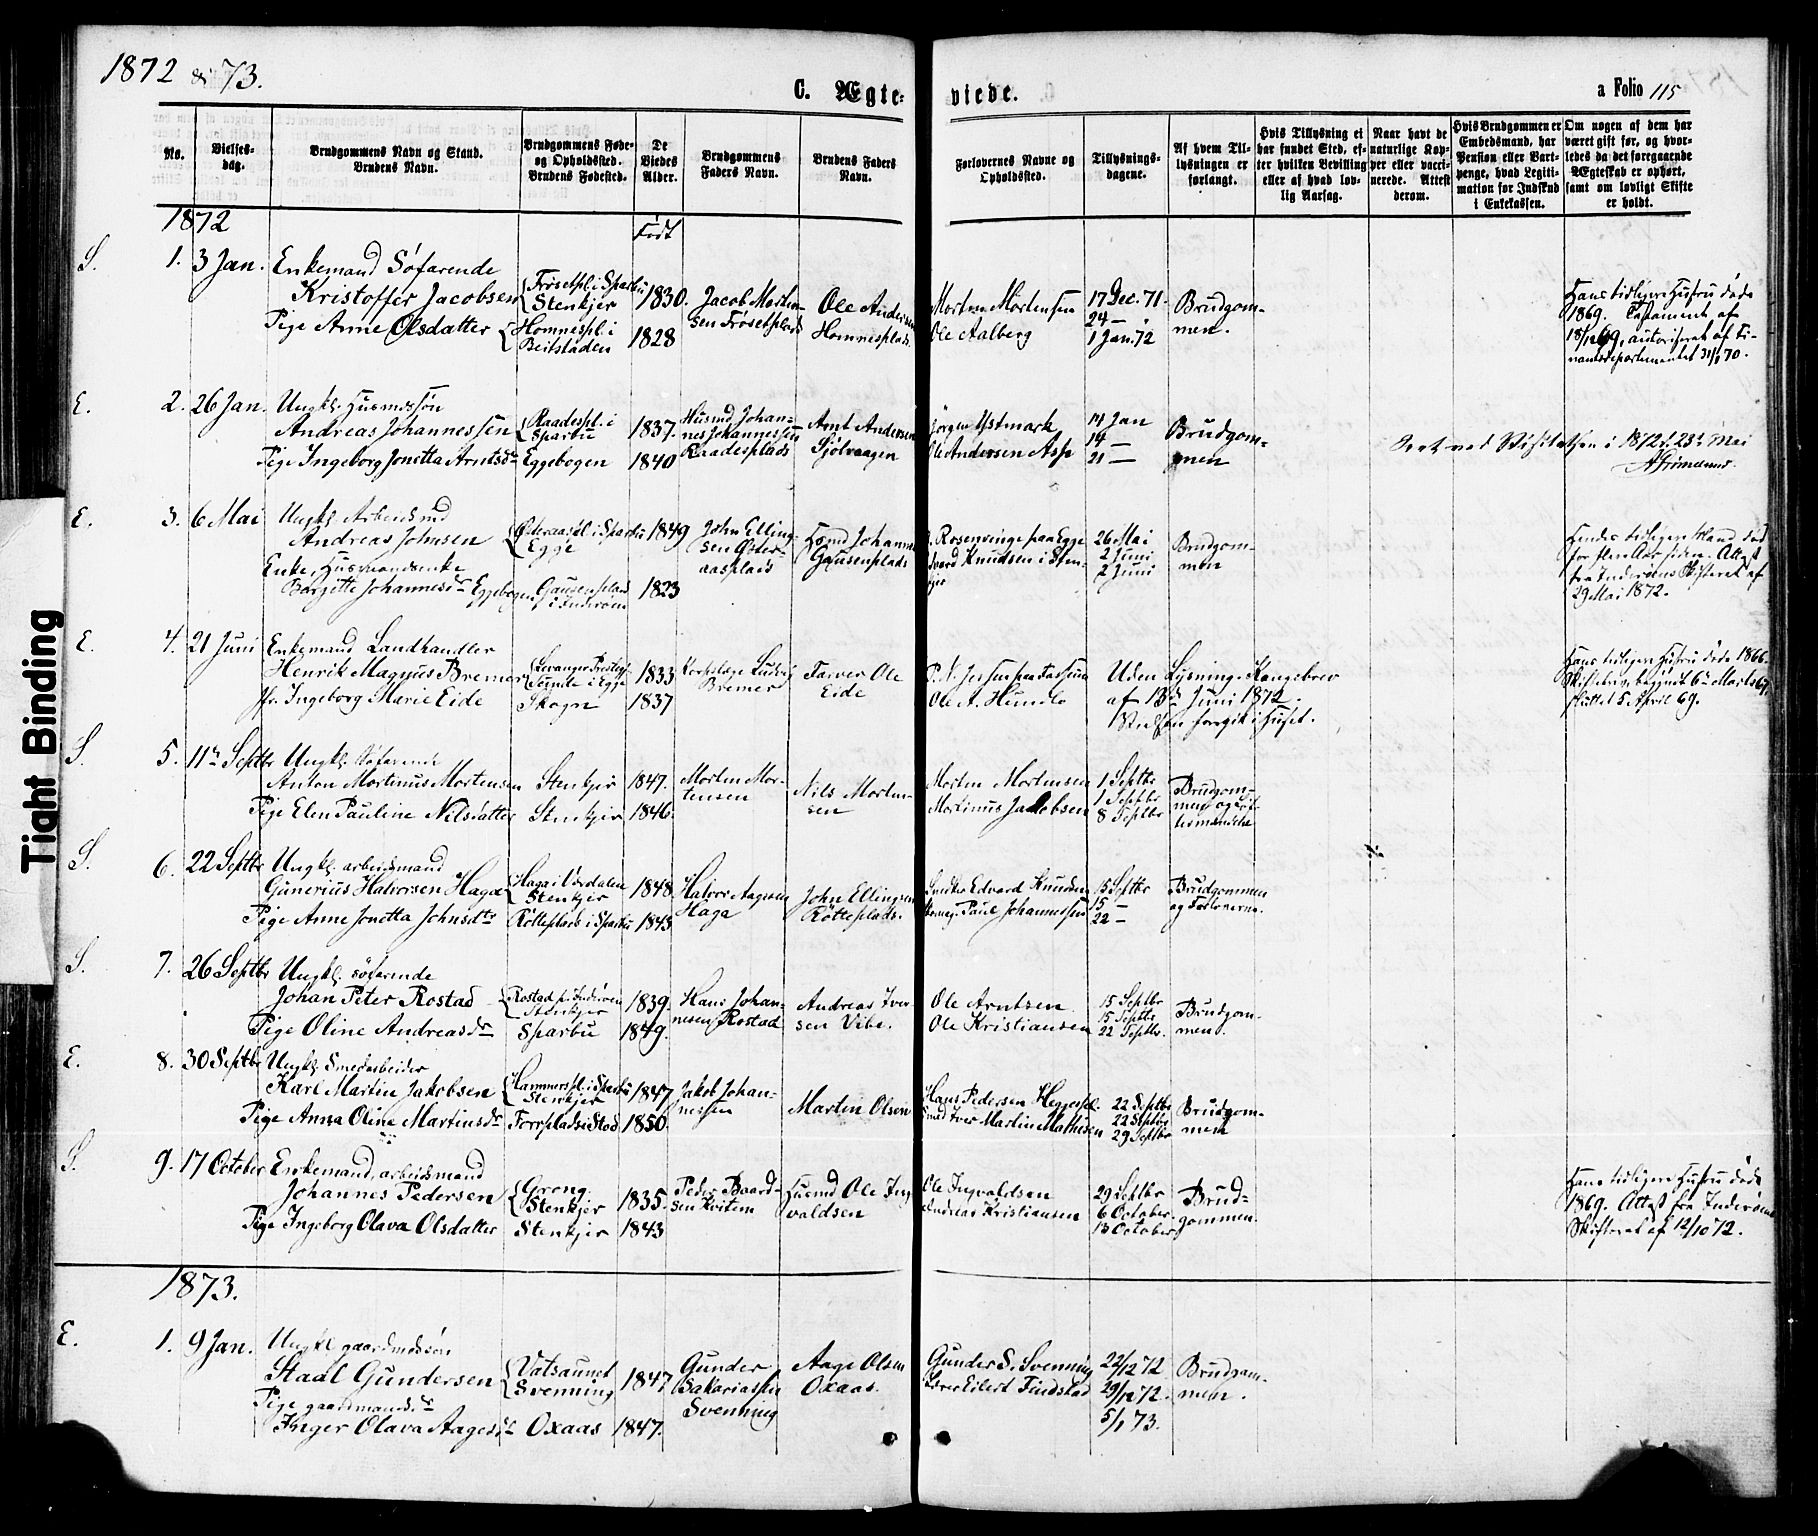 1872 & 73.
C. Ægte-
viede.
a Folio 115
No.
Vielses-
dag.
Brudgommens Navn og Stand.
Brudens Navn.
Brudgommens Føde-
og Opholdssted.
Brudens Fødested.
De
Viedes
Alder.
Brudgommens
Faders Navn.
Brudens Faders
Navn.
Forlovernes Navne og
Opholdssted.
Tillysnings-
dagene.
Af hvem Til-
lysningen er
forlangt.
Hvis Tillysning ei
har fundet Sted, ef-
ter hvilken Bevilling
eller af hvad lov-
lig Aarsag.
Naar havt de
naturlige Kop-
per eller vacci-
nerede. Attest
derom.
Hvis Brudgommen er
Embedsmand, har
Pension eller Vart-
penge, hvad Legiti-
mation for Indskud
i Enkekassen.
Om nogen af dem har
været gift før, og hvor-
ledes da det foregaaende
Ægteskab er ophørt,
samt om lovligt Skifte
er holdt.
1872
Født
S. 1. 3 Jan.
Enkemand Søfarende
Kristoffer Jacobsen
Pige Anne Olsdatter
Frøsetpl. i Sparbu
Stenkjer
Homnespl. i
Beitstaden
1830.
1828
Jacob Morten-
sen Frøsetplads
Ole Andersen
Homnesplads
Morten Mortensen
Ole Aalberg
17 Dec. 71.
24 —
1 Jan. 72
Brudgom-
men.
Hans tidligere Hustru døde
1869. Testament af
18/12 69, autoriseret af Fi-
nantsdepartementet 31/1 70.
E. 2. 26 Jan.
Ungkl. Husmdssøn
Andreas Johannessen
Pige Ingeborg Jonetta Arntsdr
Raadespl. i
Sparbu
Eggebogen
1837.
1840
Husmd Johan-
nes Johannessen
Raadesplads
Arnt Andersen
Sjølvaagen
Jørgen Østmark
Ole Andersen Asp
14 Jan
14 —
21 —
Brudgom-
men
Seet ved Visitatsen i 1872 d. 23de Mai
E. 3. 6 Mai
Ungkl. Arbeidsmd
Andreas Johnsen
Enke, Husmandsenke
Borgitte Johannesdr Eggebogen
Østeraaspl. i Sparbu
Egge
Gausenplads
i Inderøen
1849
1823
John Elling-
sen Øster-
aasplads
Husmd Johannes
Gausenplads
Rosenvinge paa Egge
Edvard Knudsen i Sten-
kjer
26 Mai
2 Juni
2 Juni
Brudgom-
men
Hendes tidligere Mand død
for flere Aar siden. Attest
fra Inderøens Skifteret af
29 Mai 1872.
E. 4. 21 Juni
Enkemand Landhandler
Henrik Magnus Bremer
Jfr. Ingeborg Marie Eide
Sunde i Egge
Skogn
1833
1837
Ludvig
Bremer
Farver Ole
Eide
Ole A. Hemlo
Uden Lysning. Kongebrev
af 13de Juni 1872.
Vielsen foregik i Huset.
Hans tidligere Hustru døde 1866.
Skiftebrev begyndt 6 Marts 67,
sluttet 5 April 69.
S. 5. 11te Septbr
Ungkl. Søfarende
Anton Martinus Mortensen
Pige Elen Pauline Nilsdatter
Stenkjer
Stenkjer
1847.
1846.
Morten Mor-
tensen
Nils Morten-
sen
Morten Mortensen
Martinus Jakobsen
1 Septbr
1 Septbr
8 Septbr
Brudgom-
men og
S. 6. 22 Septbr
Ungkl. arbeidsmand
Gunerius Halvorsen Haga
Pige Anne Jonetta Johnsdtr
Haga i Værdalen
Stenkjer
Røtteplads i Sparbu
1848.
1843
Halvor Aagesen
Haga
John Ellingsen
Røtteplads.
Snedker Edvard Knudsen
Paul Johannessen
15 Septbr
15 —
22 —
Brudgommen
og Forloverne.
S. 7. 26 Septbr
Ungkl. søfarende
Johan Peter Rostad
Pige Oline Andreasdr
Rostad pl. Inderøen
Stenkjer
Sparbu
1839.
1849.
Hans Johan-
nesen Rostad
Andreas Iver-
sen Vibe.
Ole Arntsen
Ole Kristiansen
15 Septbr
15 Septbr
22 Septbr.
Brudgom-
men.
E. 8. 30 Septbr
Ungkl. Smedarbeider
Karl Martin Jakobsen
Pige Anna Oline Martinsdr
Hammerspl. i Sparbu
Stenkjer
Forrplads i Stod
1847
1850.
Jakob Johan-
nessen
Martin Olsen
Hans Pedersen Heggespl.
Smed Iver Martin Mathisen
22 Septbr
22 Septbr
29 Septbr
Brudgom-
men
S. 9. 17 October
Enkemand, arbeidsmand
Johannes Pedersen
Pige Ingeborg Olava Olsdatter
Grong
Stenkjer
Stenkjer
1835.
1843
Peder Baard-
sen Kvitem
Husmd Ole Ing-
valdsen
Ole Ingvaldsen
Andreas Kristiansen
29 Septbr
6 October
13 October
Brud-
gommen.
Hans tidligere Hustru døde
1869. Attest fra Inderøens
Skifteret af 12/10 72.
1873.
E. 1. 9 Jan.
Ungkl gaardmdssøn
Staal Gundersen
Pige gaardmandsdr
Inger Olava Aagesdr
Vatsaunet
Svenning
Oxaas
1847
1847.
Gunder
Sakariassen
Svenning
Aage Olsen
Oxaas.
Gunder S. Svenning
Iver Eilert Findstad
22/12 72
29/12 72.
5/1 73.
Brudgom-
men.
Tight Binding